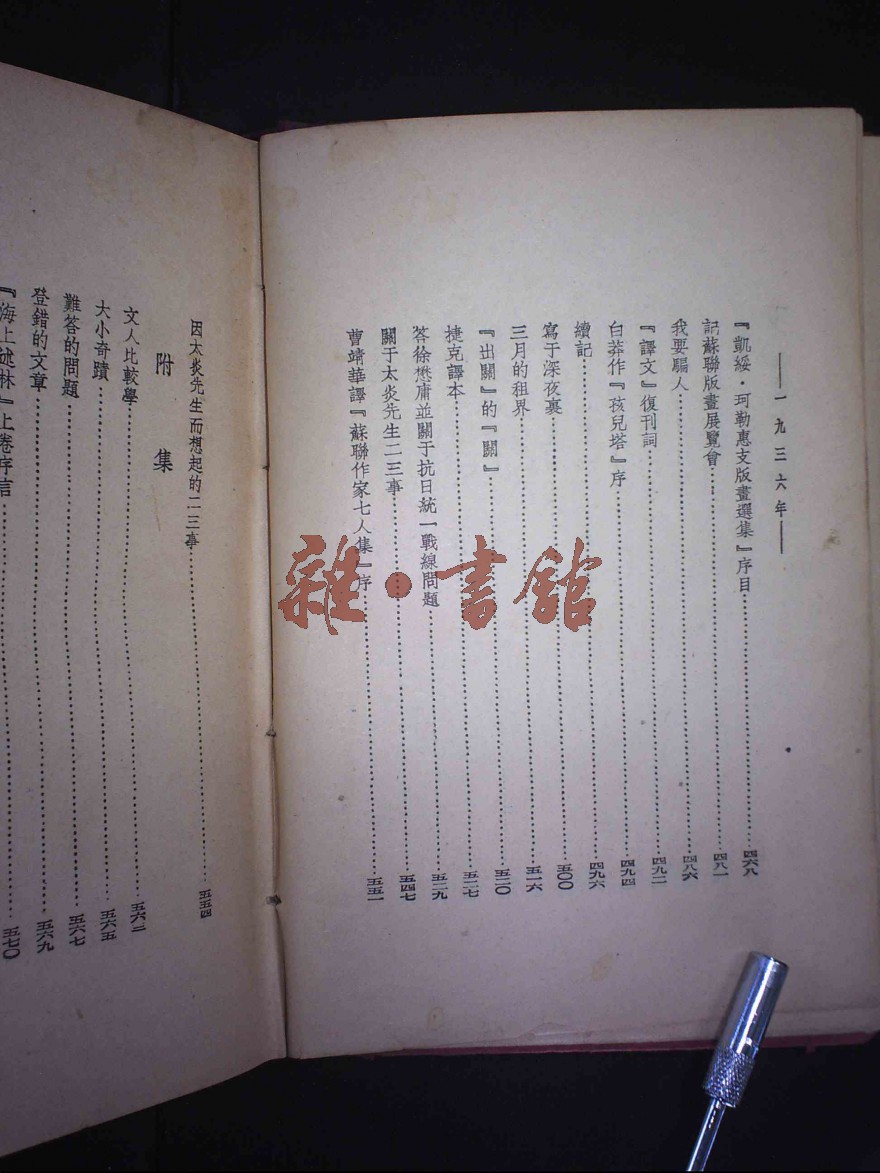 ——一九三六年——
『凱綏·珂勒惠支版畫選集』序目……四六八
記蘇聯版畫展覽會……四八一
我要騙人……四八六
『譯文』復刊詞……四九二
白莽作『孩兒塔』序……四九四
續記……四九六
寫于深夜裏……五〇〇
三月的租界……五一六
『出關』的『關』……五二〇
捷克譯本……五二七
答徐懋庸並關于抗日統一戰線問題……五二九
關于太炎先生二三事……五四七
曹靖華譯『蘇聯作家七人集』序……五五一
因太炎先生而想起的二三事……五五四
附集
文人比較學……五六二
大小奇蹟……五六五
難答的問題……五六七
登錯的文章……五六九
『海上述林』上卷序言……五七〇
雜·書館